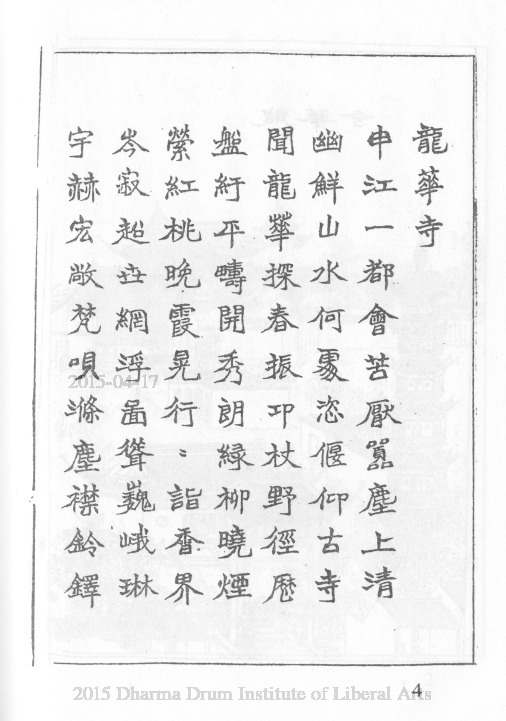 龍蕐寺
申江一都會苦厭囂塵上清
幽鮮山水何處恣偃仰古寺
聞龍蕐探春振邛杖野徑歷
盤紆平疇開秀朗綠柳曉煙
縈紅桃晚霞晃行〻詣香界
岑寂超世網浮啚聳巍峨琳
宇赫宏敞梵唄滌塵襟鈴鐸
2015-04-17
4
2015 Dharma Drum Institute of Liberal Arts